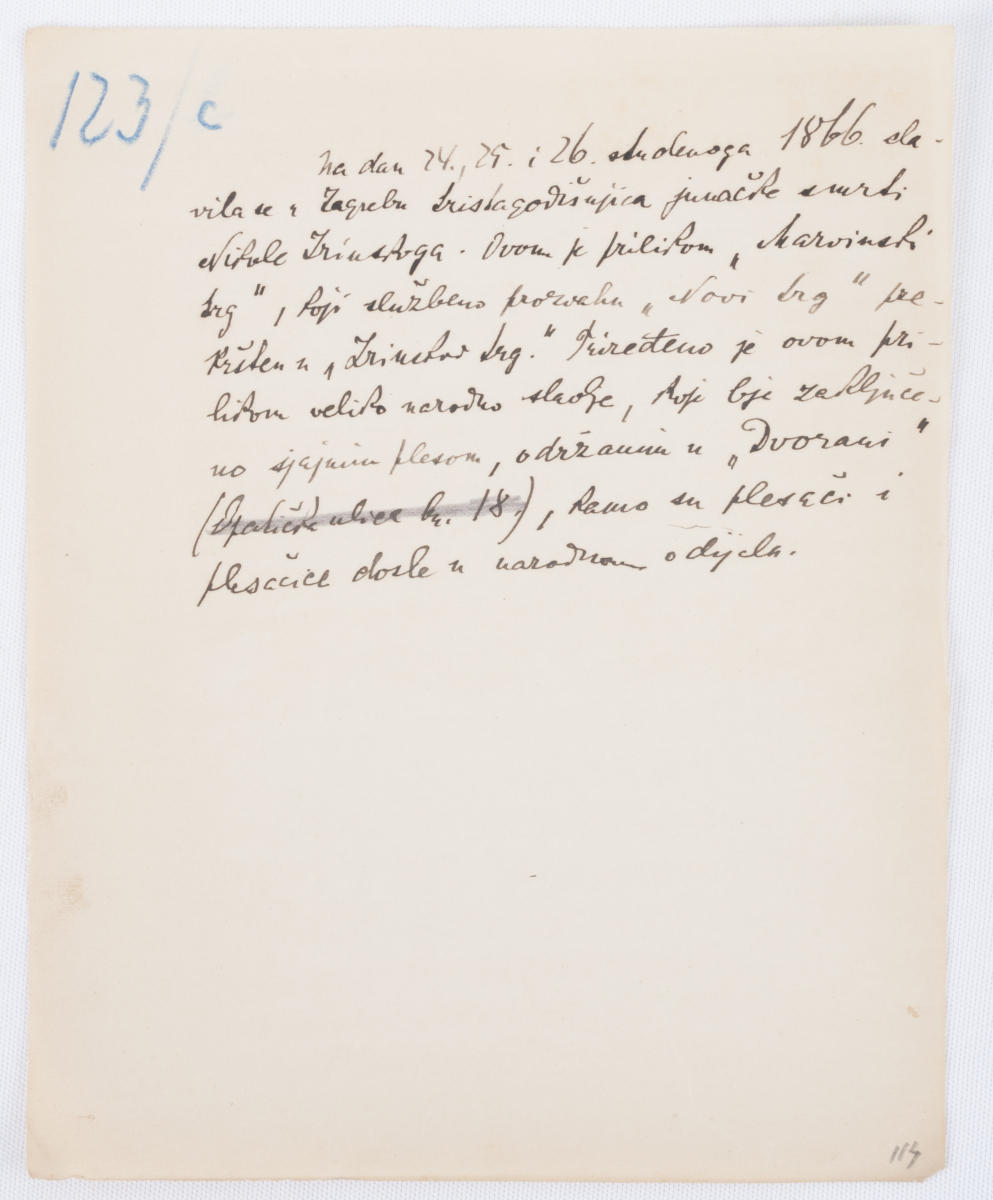 123/c
Na dan 24., 25. i 26. studenoga 1866. sla-
vila se u Zagrebu tristagodišnjica junačke smrti
Nikole Zrinskoga. Ovom je prilikom „Marvinski
trg", koji službeno prozvahu „Novi trg" pre-
kršten u „Zrinskov trg." Priređeno je ovom pri-
likom veliko narodno slavlje, koje bje zaključe-
no sjajnim plesom, održanim u „Dvorani"
(Opatička ulica br. 18.), kamo su plesači i
plesačice došle u narodnom odijelu.
114